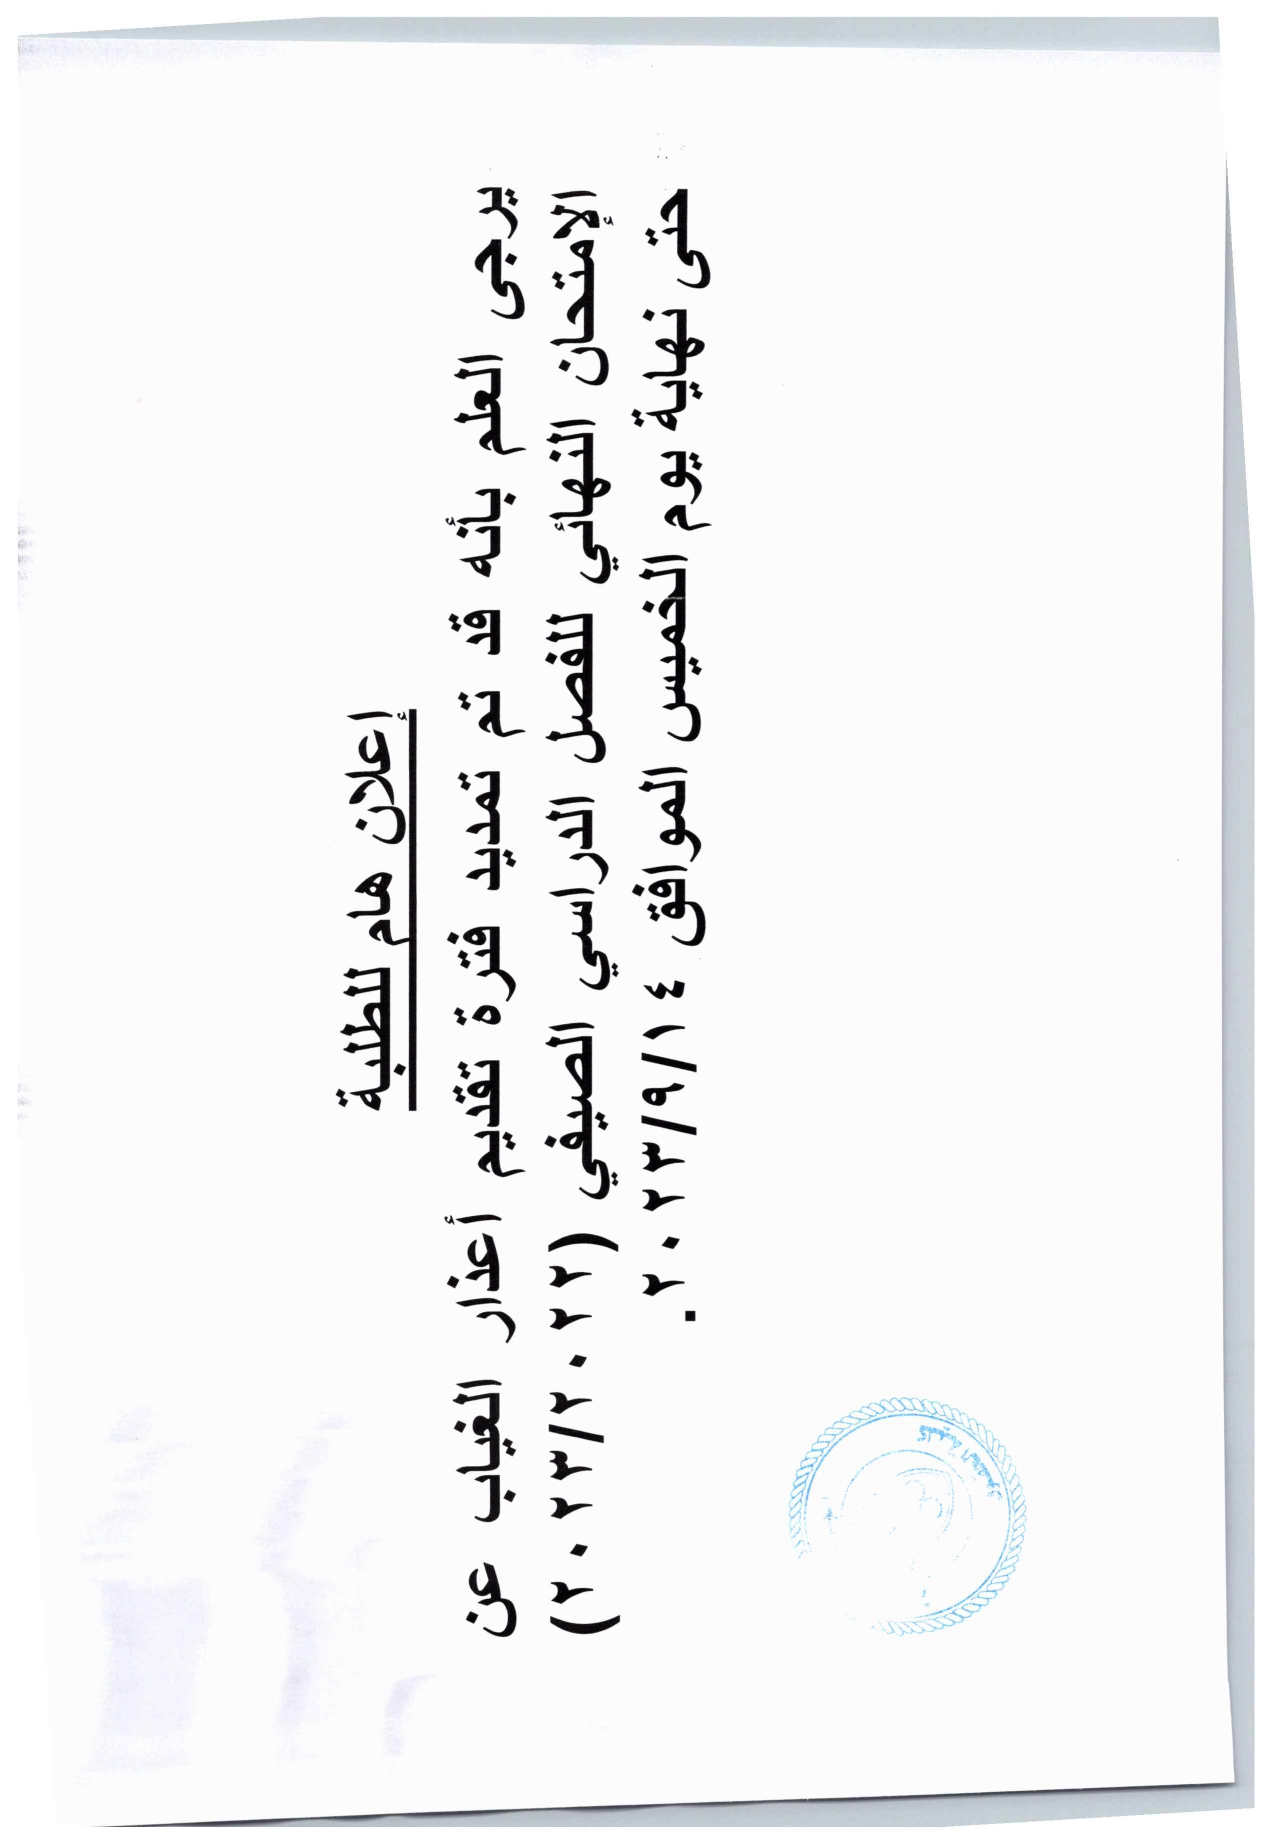 إعلان هام للطلبة
يرجى العلم بأنه قد تم تمديد فترة تقديم أعذار الغياب عن
الإمتحان النهائي للفصل الدراسي الصيفي (٢٠٢٣/٢٠٢٢)
حتى نهاية يوم الخميس الموافق ٢٠٢٣/٩/١٤.